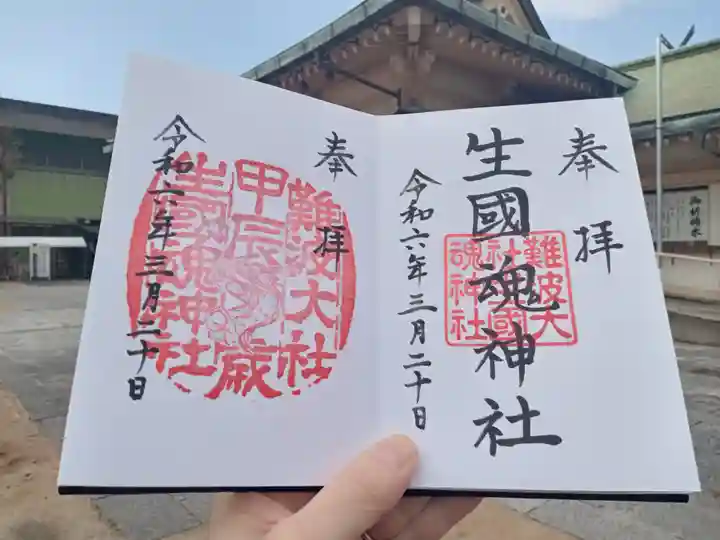 奉拝
生國魂神社
難波大
社生國
魂神社
令和六年三月二十日
奉拝
難波大社
甲辰歳
生國魂神社
令和六年三月二十日